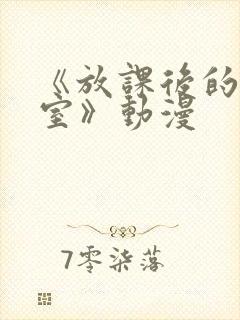 《放課後的
室》動漫
7零柒落